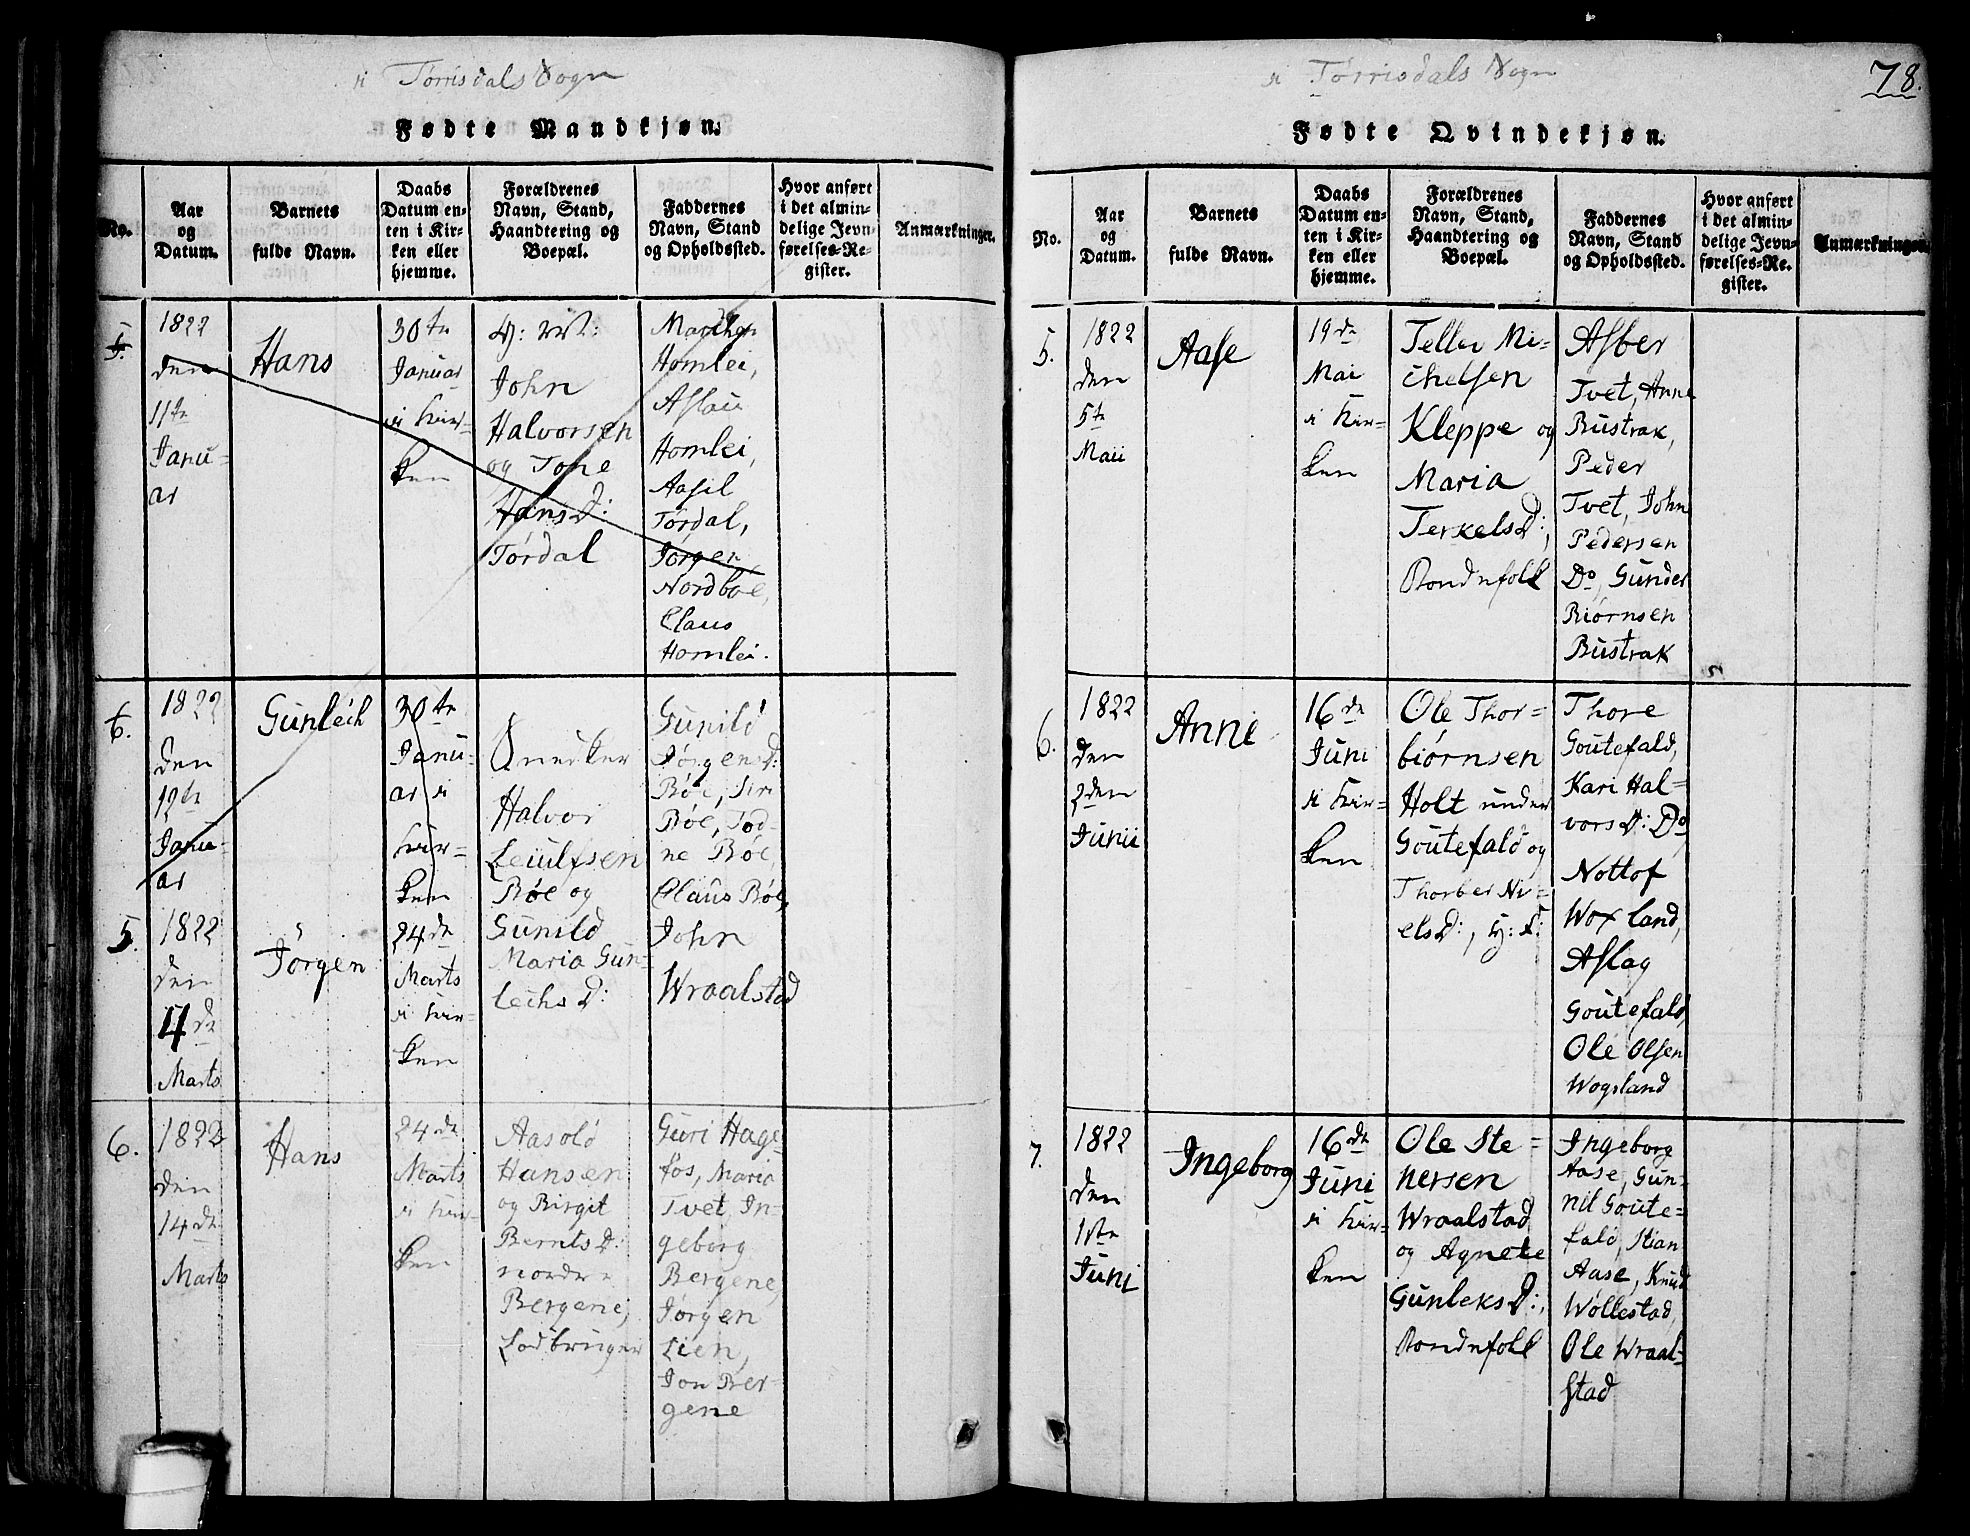 i Tørrisdals Sogn
Fødte Mandkjøn.
No.
Aar
og
Datum.
Barnets
fulde Navn.
Daabs
Datum en-
ten i Kir-
ken eller
hjemme.
Forældrenes
Navn, Stand,
Haandtering og
Boepæl.
Faddernes
Navn, Stand
og Opholdssted.
Hvor anført
i det almin-
delige Jevn-
førelses-Re-
gister.
Anmærkninger.
1822
den
11te
Janu-
ar
Hans
30te
Januar
i Kir-
ken
John
Halvorsen
og Tone
Hans D:
Tørdal
Homlei,
Aslau
Homlei,
Aasil
Tørdal,
Jørgen
Nordboe,
Claus
Homlei.
6.
1822
den
12te
Janu-
ar
Gunlech
30te
Janu-
ar i
Kir-
ken
Halvor
Leiulfsen
Bøe og
Gunild
Maria Gun-
lechs D:
Gunild
Jørgens D:
Bøe, Siri
Bøe, Tod-
ne Bøe,
Claus Bøe,
John
Wraalstad
5.
1822
den
4de
Marts
Jørgen
24de
Marts
i Kir-
ken
6.
1822
den
14de
Marts
Hans
24de
Marts
i Kir-
ken
Aasold
Hansen
og Birgit
Bernts D:
nordre
Bergene,
Lodbruger
Guri Hage-
fos, Maria
Tvet, In-
geborg
Bergene,
Jørgen
Lien,
Jon Ber-
gene
i Tørrisdals Sogn
78.
Fødte Qvindekjøn.
No.
Aar
og
Datum.
Barnets
fulde Navn.
Daabs
Datum en-
ten i Kir-
ken eller
hjemme.
Forældrenes
Navn, Stand,
Haandtering og
Boepæl.
Faddernes
Navn, Stand
og Opholdssted.
Hvor anført
i det almin-
delige Jevn-
førelses-Re-
gister.
Anmærkninger.
5.
1822
den
5te
Maii
Aase
19de
Mai
i Kir-
ken
Tellev Mi-
chelsen
Kleppe og
Maria
Terkels D:,
Bondefolk
Asber
Tvet, Anne
Bustrak,
Peder
Tvet, John
Pedersen
Do, Gunder
Biørnsen
Bustrak
6.
1822
den
2den
Junii
Anne
16de
Juni
i Kir-
ken
Ole Thor-
biørnsen
Holt under
Goutefald og
Thorber Ni-
els D:,
Thore
Goutefald,
Kari Hal-
vors D: Do
Nottof
Woxland,
Aslag
Goutefald,
Ole Olsen
Wogsland
7.
1822
den
1ste
Juni
Ingeborg
16de
Juni
i Kir-
ken
Ole Ste-
nersen
Wraalstad
og Agnete
Gunleks D:,
Bondefolk
Ingeborg
Aase, Gun-
nil Goute-
fald, Stian
Aase, Knud
Wøllestad,
Ole Wraal-
stad